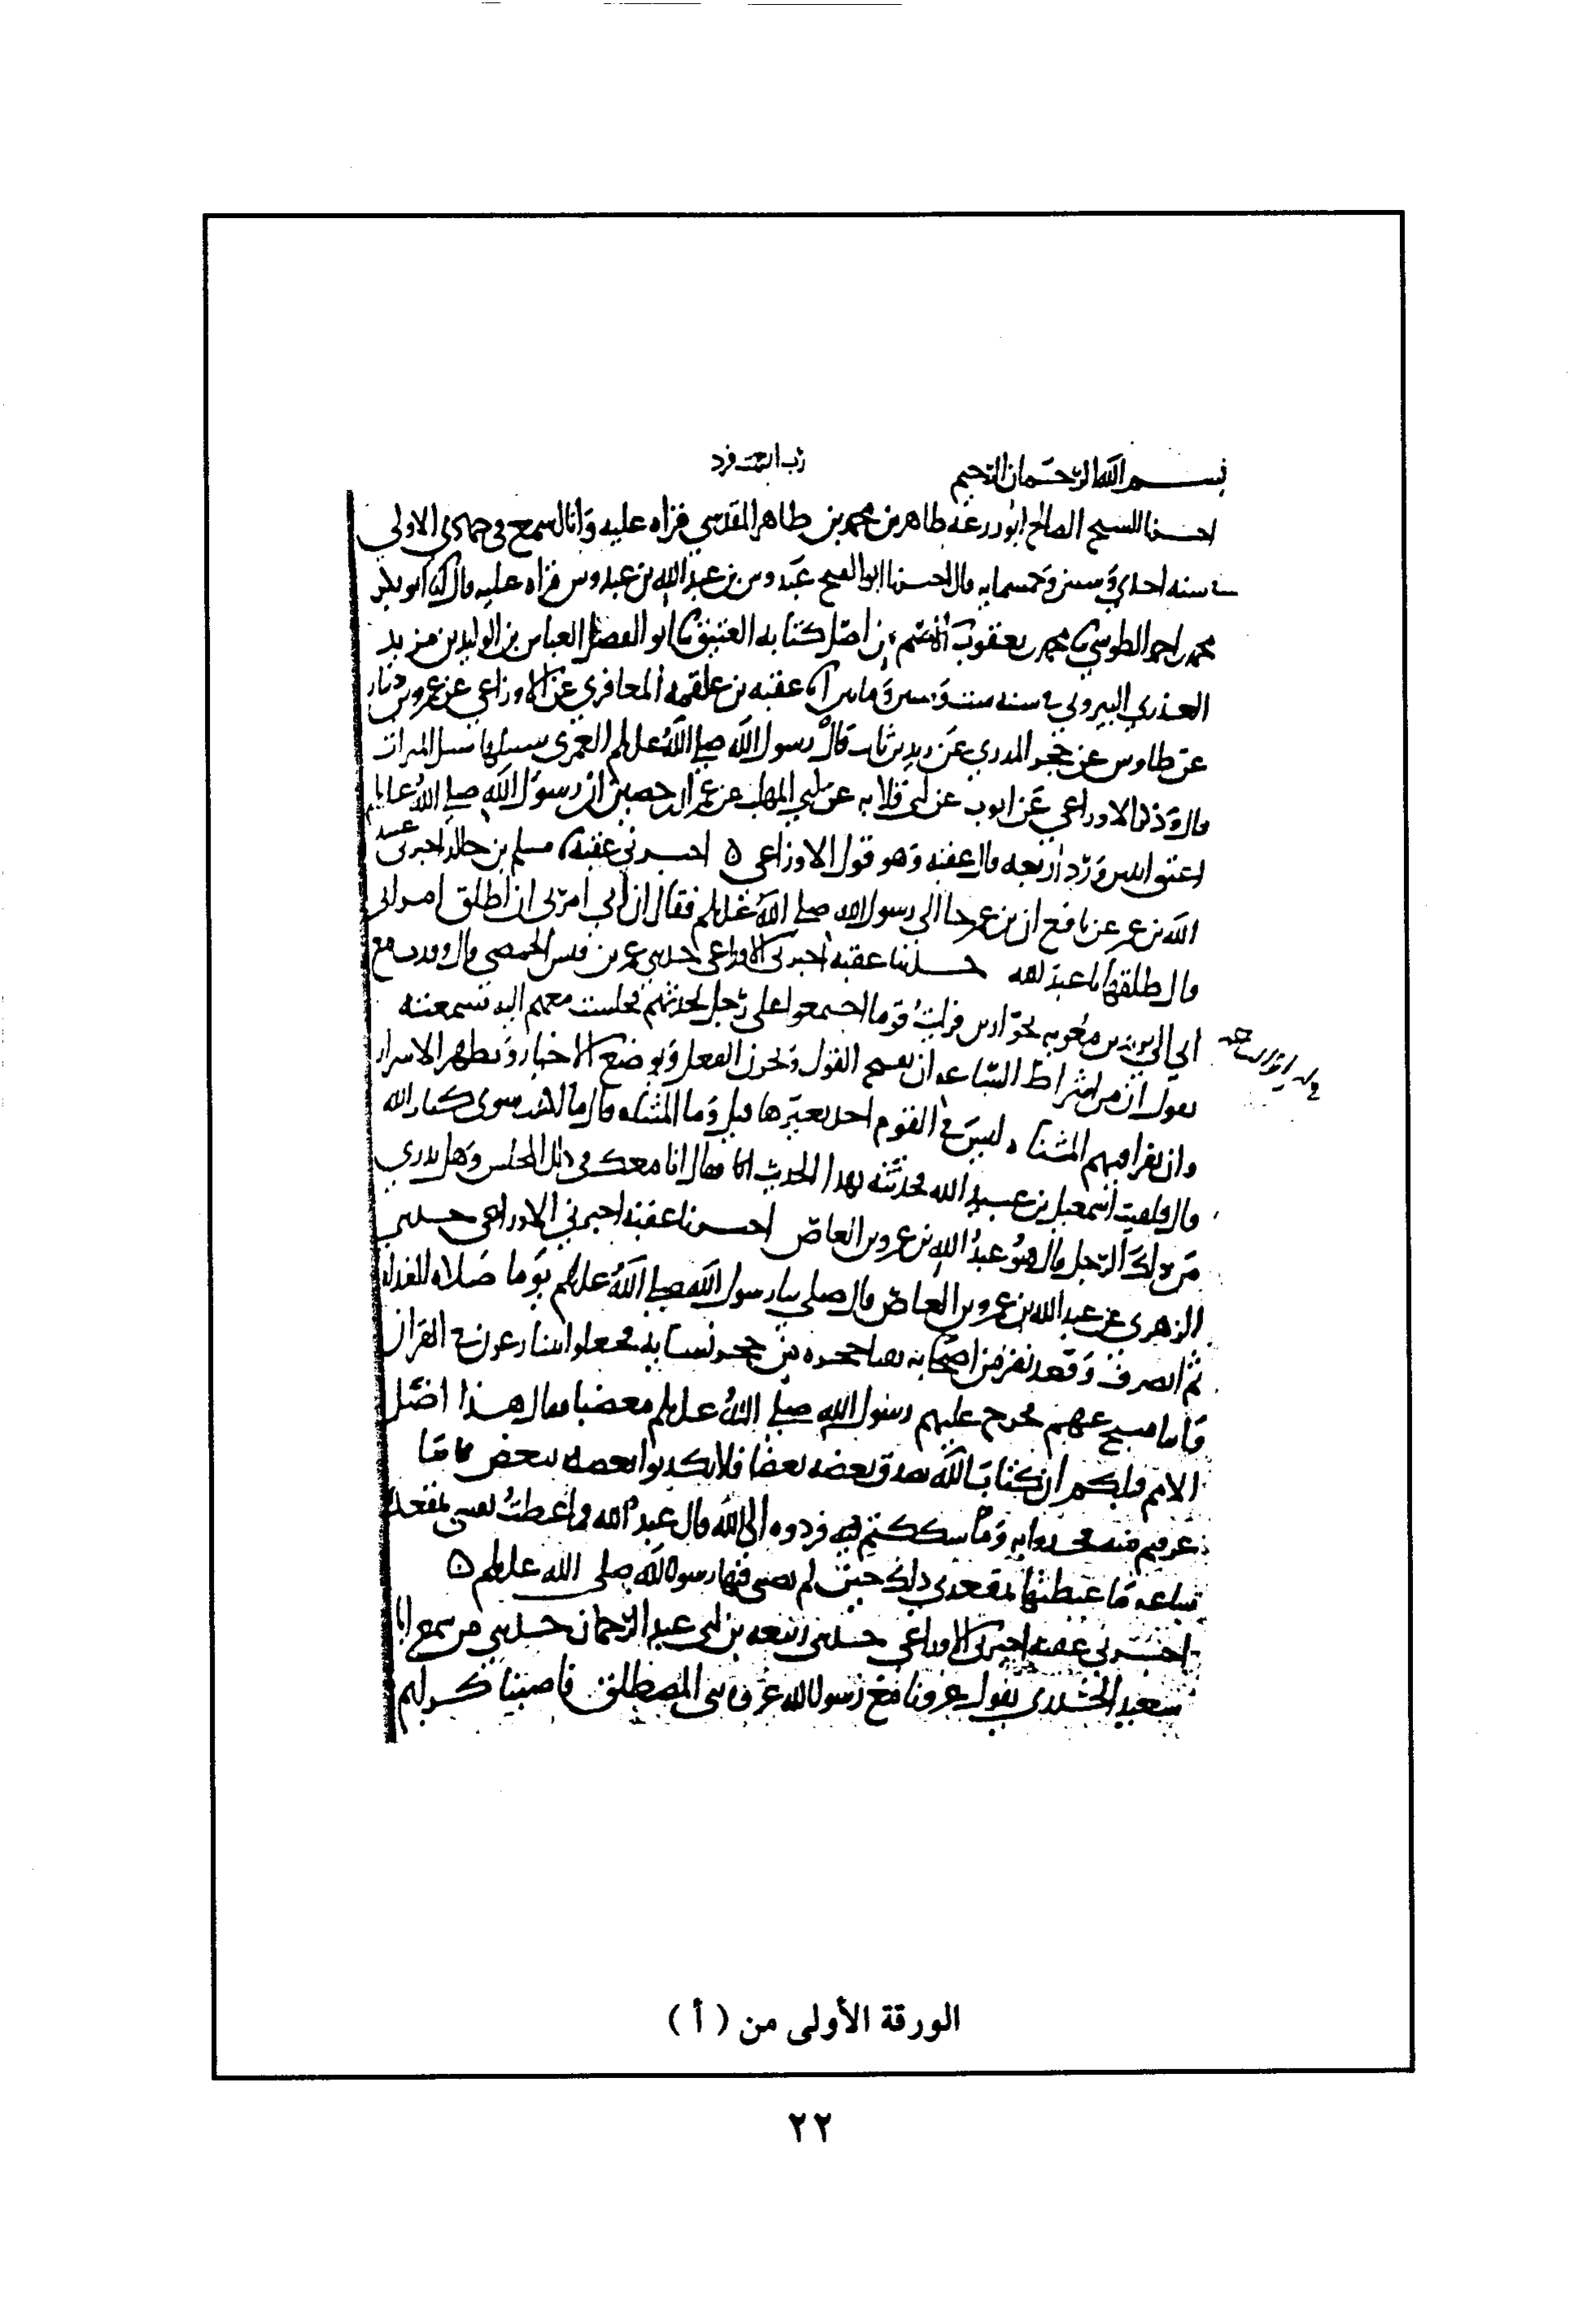 بسم الله الرحمان الرحيم
اخبرنا الشيخ الصالح ابو زرعه طاهر بن محمد بن طاهر المقدسي قراه عليه وانا اسمع في جمادى الاولى
سنه احدى وستين وخمسمايه قال اخبرنا ابو الفتح عبدوس بن عبد الله بن عبدوس قراه عليه قال ابو بكر
محمد بن احمد الطوسي محمد بن يعقوب الاصم من اصل كتابه العتيق ابو الفضل العباس بن الوليد بن مزيد
العذري البيروتي في سنه ست وستين ومايتين عقبه بن علقمه المعافري عن الاوزاعي عن عمرو بن دينار
عن طاوس عن حجر المدري عن زيد بن ثابت قال رسول الله صلى الله عليه وسلم العمرى سبيلها سبيل الميراث
قال الاوزاعي عن ايوب عن ابي قلابه عن ابي المهلب عن عمران بن حصين ان رسول الله صلى الله عليه وسلم
اعتق اثنين ورد اربعه قال عقبه وهو قول الاوزاعي ٥ اخبرني عقبه مسلم بن خالد اخبرني عبيد
الله بن عمر عن نافع ان بن عمر جا الى رسول الله صلى الله عليه وسلم فقال ان ابي امرني ان اطلق امراتي
قال طلقها يا عبد الله حدثنا عقبه اخبرني الاوزاعي حدثني عمرو بن قيس الحمصي قال وفدت مع
ابي الى يزيد بن معويه بحوارين فرايت قوما اجتمعوا على رجل يحدثهم فجلست معهم اليه فسمعته
يقول ان من اشراط الساعه ان يفتح القول ويخزن الفعل ويوضع الاخيار ويظهر الاشرار
وان يقرا فيهم المثناه ليس في القوم احد يغيرها قيل وما المثناه قال ما سوى كتاب الله
قال فلقيت اسمعيل بن عبيد الله فحدثته بهذا الحديث فقال انا معك في ذلك المجلس وهل تدري
من ذلك الرجل قال هو عبد الله بن عمرو بن العاص اخبرنا عقبه اخبرني الاوزاعي حدثني
الزهري عن عبد الله بن عمرو بن العاص قال صلى بنا رسول الله صلى الله عليه وسلم يوما صلاه الغداه
ثم انصرف وقعد نفر من اصحابه حجره من حجر نسايه فجعلوا يتنازعون في القران
عليهم رسول الله صلى الله عليه وسلم مغضبا فقال هذا اضل
الامم قبلكم ان كتاب الله يصدق بعضه بعضا فلا تكذبوا بعضه ببعض فما
عرفتم منه فخذوا به وما شككتم فيه فردوه الى الله قال عبد الله فما غبطت نفسي بمقعد
ساعه ما غبطتها بمقعدي ذلك حين لم رسول الله صلى الله عليه وسلم ٥
اخبرني عقبه اخبرني الاوزاعي حدثني ربيعه بن ابي عبد الرحمان حدثني من سمع ابا
سعيد الخدري يقول غزونا مع رسول الله غزوه بني المصطلق فاصبنا كرايم
الورقة الأولى من ( أ )
٢٢